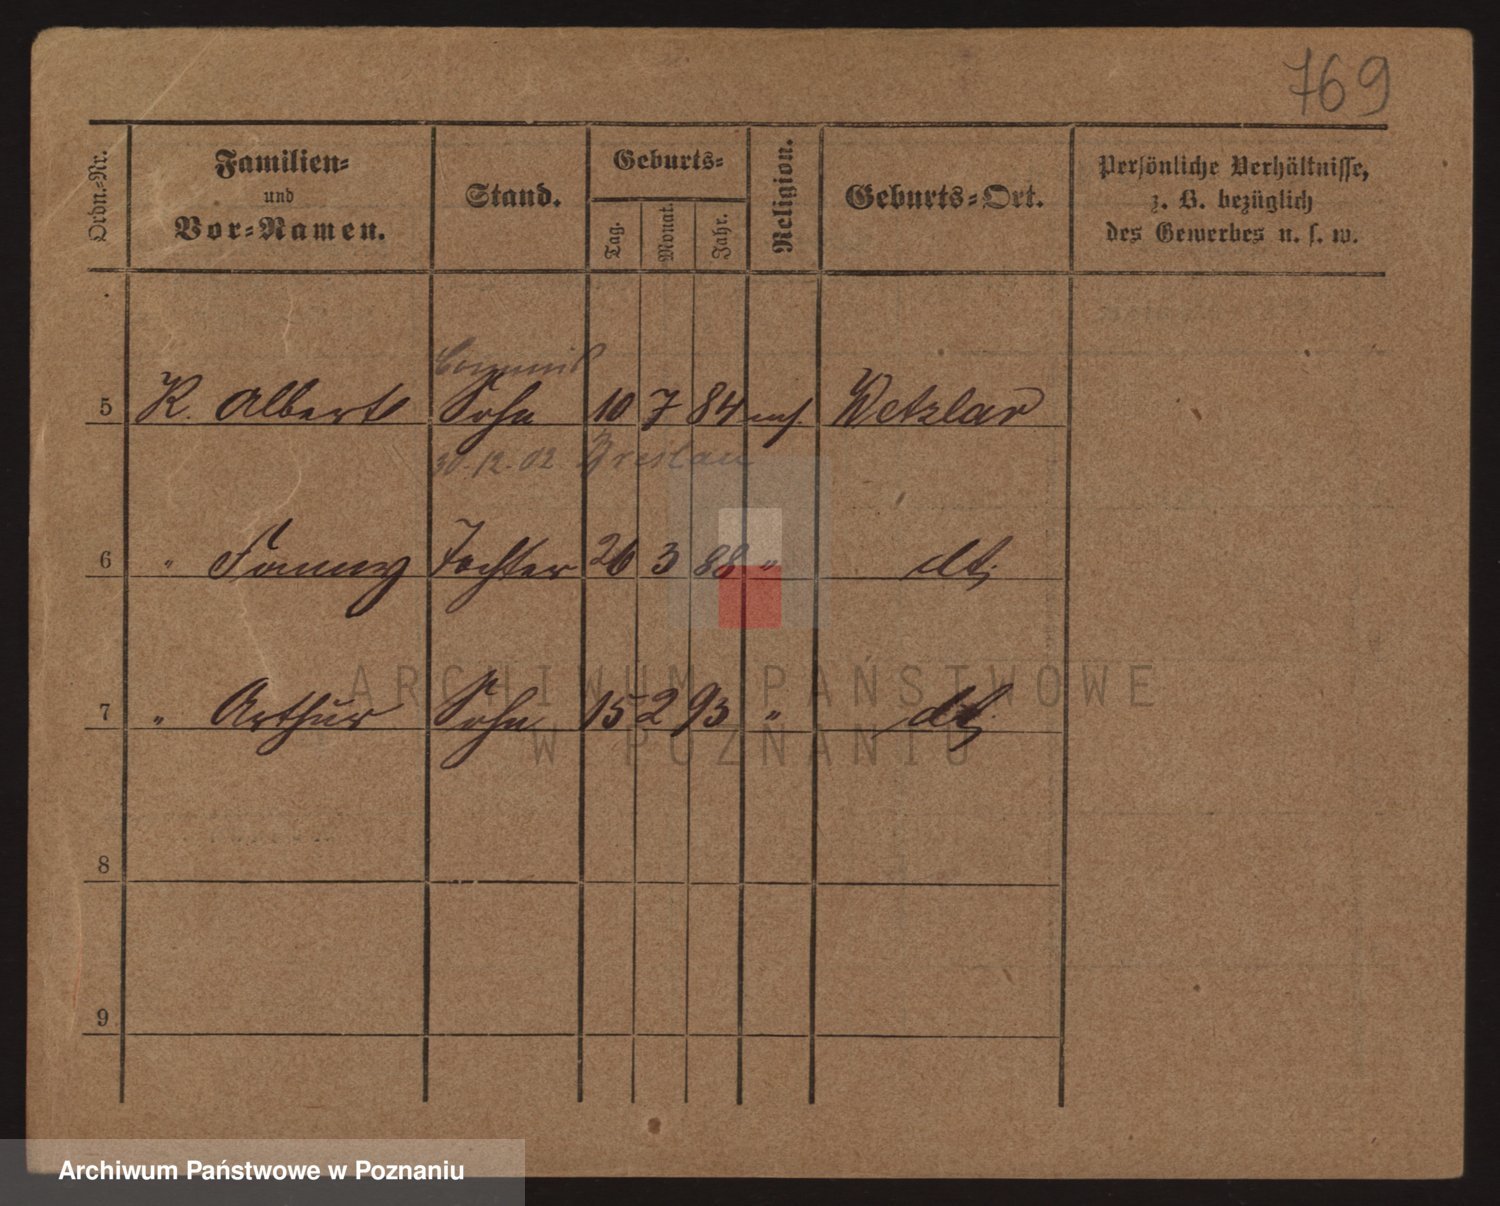 769
Ordn.-Nr. Familien- und Vor-Namen. Stand. Geburts- Tag. Monat. Jahr. Religion. Geburts-Ort. Persönliche Verhältnisse, z. B. bezüglich des Gewerbes u. s. w.
Commis
5 K. Albert Sohn 10 7 84 Wetzlar
30.12.02 Breslau
6 " Fanny Tochter 26 3 88 " dt.
7 " Arthur Sohn 15 2 93 " dt.
8
9
ARCHIWUM PAŃSTWOWE
W POZNANIU
Archiwum Państwowe w Poznaniu